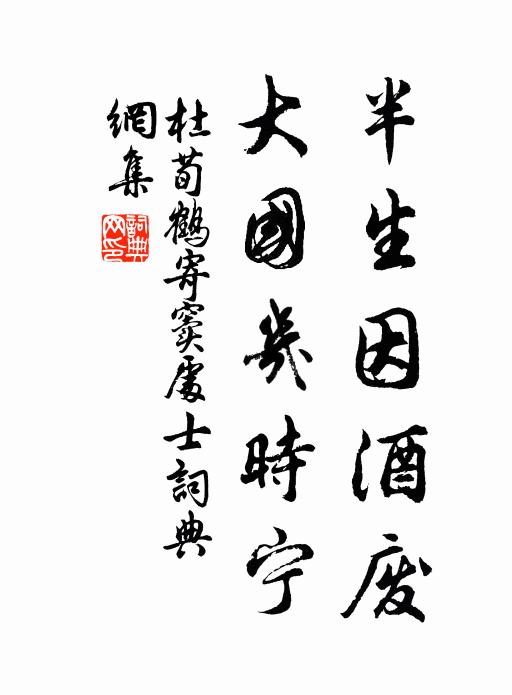 半生因酒废
大國幾時宁
杜荀鶴寄竇處士詞典
網集
詞典
网印